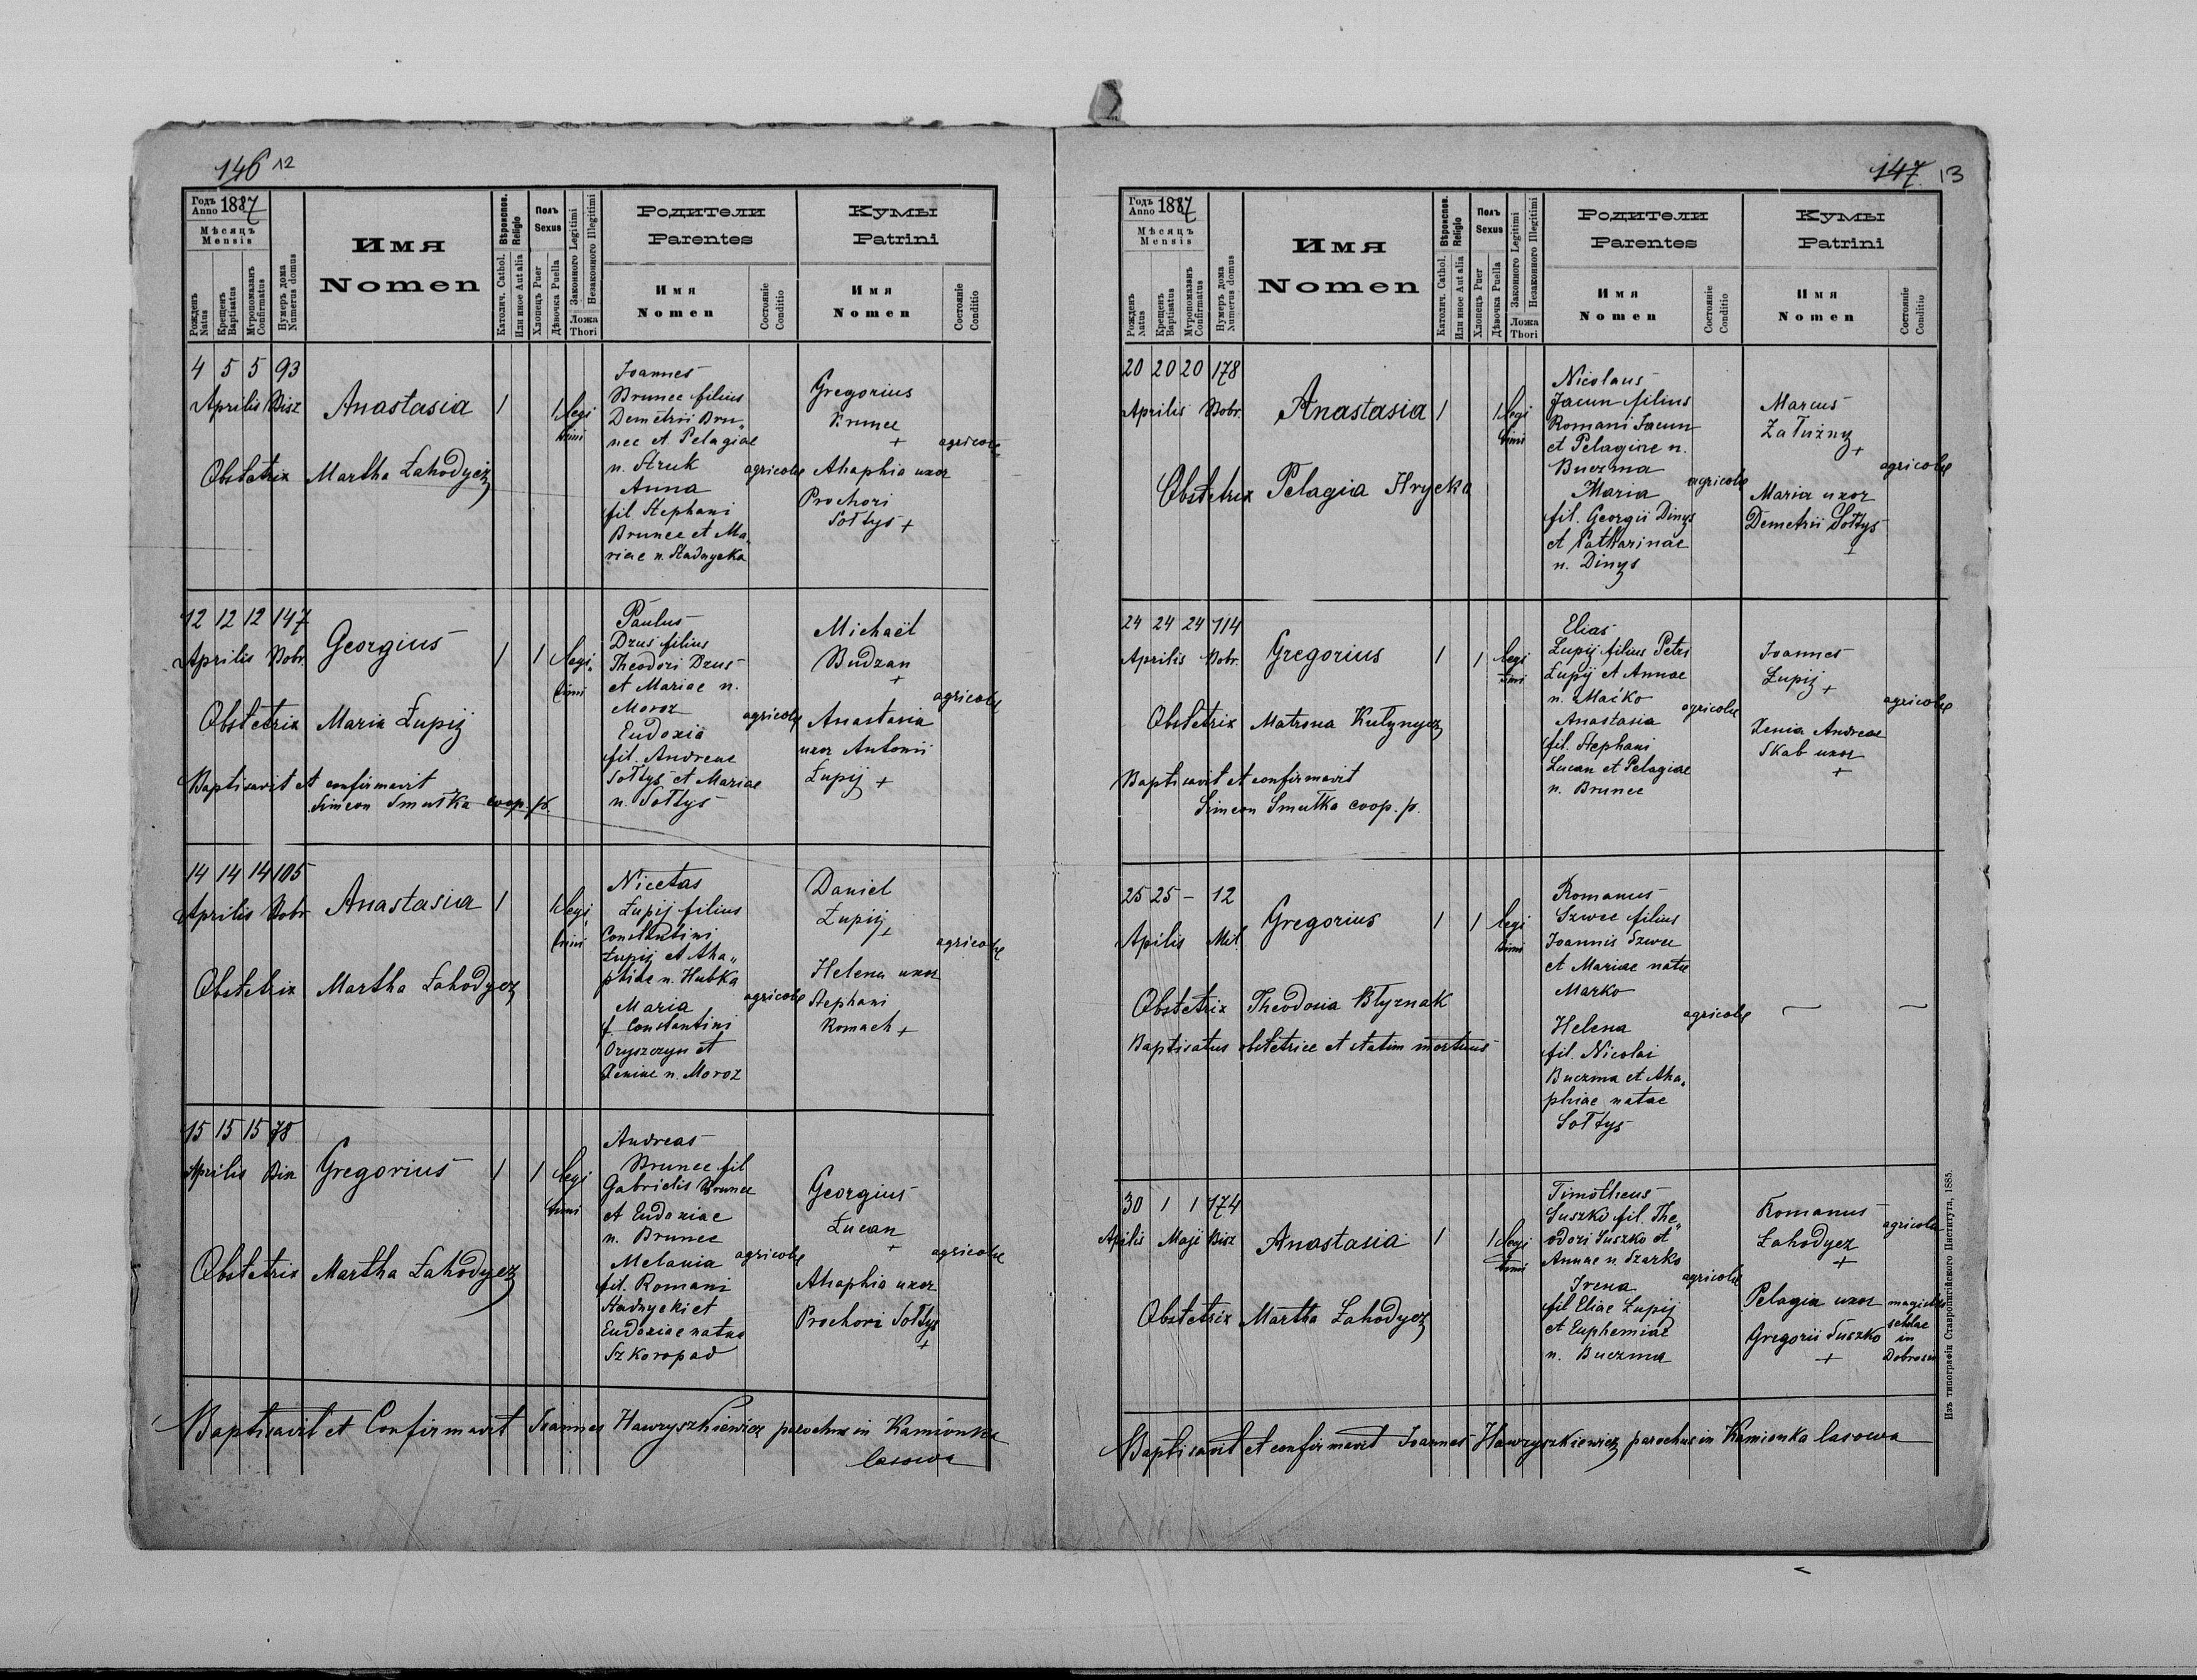 146 12
Годъ Anno 1887
Мѣсяцъ
Mensis
Рожденъ Natus
Крещенъ Baptisatus
Мѵропомазанъ Confirmatus
Нумеръ дома Numerus domus
Имя
Nomen
Вѣроиспов. Religio
Католич. Cathol.
Или иное Aut alia
Полъ
Sexus
Хлопецъ Puer
Дѣвочка Puella
Законного Legitimi
Незаконного Illegitimi
Ложа
Thori
Родители
Parentes
Имя
Nomen
Состояніе
Conditio
Кумы
Patrini
Имя
Nomen
Состояніе
Conditio
4 5 5 93
Aprilis Bisz
Anastasia 1 1 legi
timi
Obstetrix Martha Łahodycz
Joannes
Brunec filius
Demetrii Bru„
nec et Pelagiae
n. Struk
Anna
fil Stephani
Brunec et Ma„
riae n. Stadnycka
agricolae
Gregorius
Brunec
+
Ahaphia uxor
Prochori
Sołtys +
agricolae
12 12 12 147
Aprilis Dobr.
Georgius 1 1 legi„
timi
Obstetrix Maria Łupij
Baptisavit et confirmavit
Simeon Smutka coop. p.
Paulus
Dzus filius
Theodori Dzus
et Mariae n.
Moroz
Eudoxia
fil. Andreae
Sołtys et Mariae
n. Sołtys
agricolae
Michaël
Budzan
+
Anastasia
uxor Antonii
Łupij +
agricolae
14 14 14 105
Aprilis Dobr
Anastasia 1 1 legi„
timi
Obstetrix Martha Łahodycz
Nicetas
Łupij filius
Constantini
Łupij et Aha„
phiae n. Hubka
Maria
f. Constantini
Oryszczyn et
Xeniae n. Moroz
agricolae
Daniel
Łupij +
Helena uxor
Stephani
Romach +
agricolae
15 15 15 78
Aprilis
Gregorius 1 1 legi
timi
Obstetrix Martha Łahodycz
Andreas
Brunec fil
Gabrielis Brunec
et Eudoxiae
n. Brunec
Melania
fil. Romani
Stadnycki et
Eudoxiae natae
Szkoropad
agricolae
Georgius
Łucan
+
Ahaphia uxor
Prochori Sołtys
+
agricolae
Baptisavit et Confirmavit Joannes Hawryszkiewicz parochus in Kamionka
lasowa
147 13
Годъ Anno 1887
Мѣсяцъ
Mensis
Рожденъ Natus
Крещенъ Baptisatus
Мѵропомазанъ Confirmatus
Нумеръ дома Numerus domus
Имя
Nomen
Вѣроиспов. Religio
Католич. Cathol.
Или иное Aut alia
Полъ
Sexus
Хлопецъ Puer
Дѣвочка Puella
Законного Legitimi
Незаконного Illegitimi
Ложа
Thori
Родители
Parentes
Имя
Nomen
Состояніе
Conditio
Кумы
Patrini
Имя
Nomen
Состояніе
Conditio
20 20 20 178
Aprilis Dobr.
Anastasia 1 1 legi
timi
Obstetrix Pelagia Hrycko
Nicolaus
Jacun filius
Romani Jacun
et Pelagiae n.
Buczma
Maria
fil. Georgii Dinys
et Catharinae
n. Dinys
agricolae
Marcus
Załużny
+
Maria uxor
Demetrii Sołtys
+
agricolae
24 24 24 114
Aprilis Dobr.
Gregorius 1 1 legi
timi
Obstetrix Matrona Kułynycz
Baptisavit et confirmavit
Simeon Smutka coop. p.
Elias
Łupij filius Petri
Łupij et Annae
n. Maćko
Anastasia
fil. Stephani
Łucan et Pelagiae
n. Brunec
agricolae
Joannes
Łupij +
Xenia Andreae
Skab uxor
+
agricolae
25 25 — 12
Aprilis Mił.
Gregorius 1 1 legi
timi
Obstetrix Theodosia Błyznak
Baptisatus obstetrice et statim mortuus
Romanus
Szwec filius
Joannis Szwec
et Mariae natae
Marko
Helena
fil. Nicolai
Buczma et Aha„
phiae natae
Sołtys
agricolae
— —
30 1 1 174
Aprilis Maji Bisz
Anastasia 1 1 legi
timi
Obstetrix Martha Łahodycz
Timotheus
Suszko fil. The„
odori Suszko et
Annae n. Szarko
Irena
fil Eliae Łupij
et Euphemiae
n. Buczma
agricolae
Romanus
Łahodycz
+
agricolae
Pelagia uxor
Gregorii Suszko
+
magistri
scholae
in
Dobrosin
Baptisavit et confirmavit Joannes Hawryszkiewicz parochus in Kamionka lasowa
Изъ типографіи Ставропигійского Института, 1885.